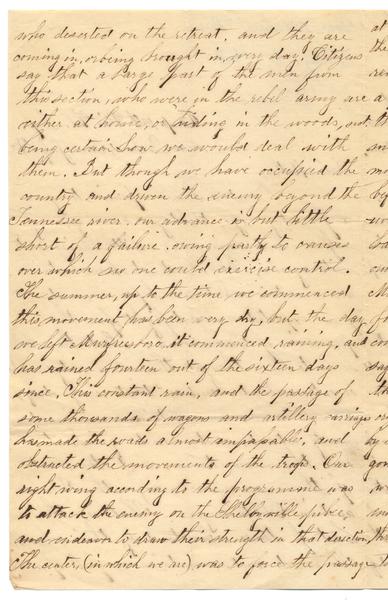 who deserted on the retreat, and they are
coming in, or being brought in, every day. Citizens
say that a large part of the men from
this section, who were in the rebel army are
either at home, or hiding in the woods, not
being certain how we would deal with
them. But though we have occupied the
country and driven the enemy beyond the
Tennessee river, our advance is but little
short of a failure, owing partly to causes
over which no one could exercise control.
The summer, up to the time we commenced
this movement has been very dry, but the day
we left Murfreesboro it commenced raining, and
has rained fourteen out of the sixteen days
since. This constant rain, and the passage of
some thousands of wagons and artillery carriages
has made the roads almost impassable, and
obstructed the movements of the troops. Our
right wing according to the programme was
to attack the enemy on the Shelbyville pike
and endeavor to draw their strength in that direction.
The center, (in which we are) was to force the passage